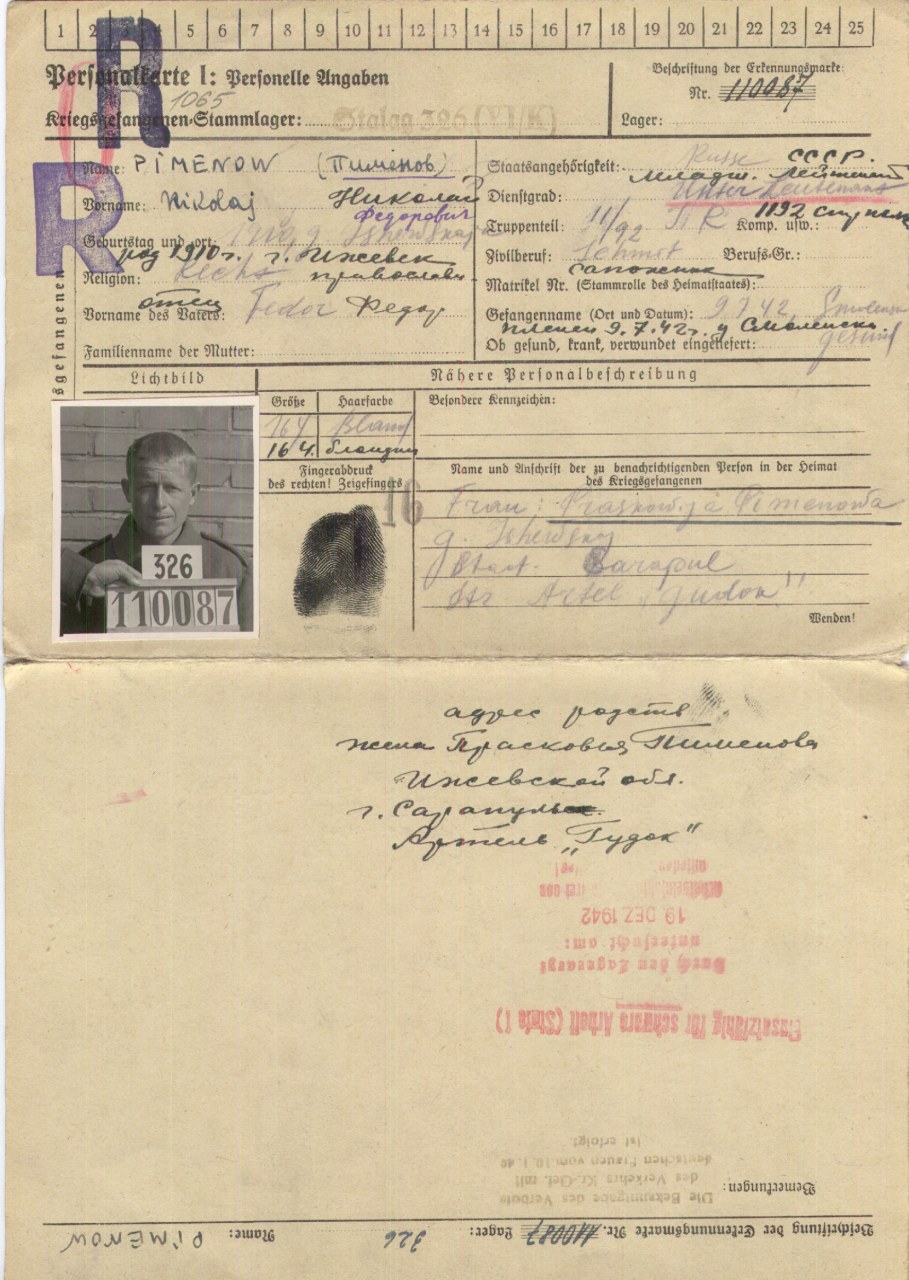 1 2 3 4 5 6 7 8 9 10 11 12 13 14 15 16 17 18 19 20 21 22 23 24 25
R
Personalkarte I: Personelle Angaben
1065
Kriegsgefangenen-Stammlager:
Beschriftung der Erkennungsmarke:
Nr. 110087
Lager:
R
Name: PIMENOW (Пименов)
Vorname: Nikolaj Николай
Федорович
Geburtstag und -ort:
род 1910 г. г. Ижевск
Religion: православн
отец
Vorname des Vaters: Fedor Федор
Familienname der Mutter:
Staatsangehörigkeit: Russe СССР.
Младш. Лейтенант
Dienstgrad: Unter Leutenant
Truppenteil: Komp. usw.:
1192
Zivilberuf: Berufs-Gr.:
сапожник
Matrikel Nr. (Stammrolle des Heimatstaates):
Gefangenname (Ort und Datum): 9.7.42.
пленен 9.7.42 г. у Смоленска.
Ob gesund, krank, verwundet eingeliefert: gesund
sgefangenen
Lichtbild
Nähere Personalbeschreibung
Größe Haarfarbe
164 Blond
164. блондин
Besondere Kennzeichen:
Fingerabdruck
des rechten! Zeigefingers
16
Name und Anschrift der zu benachrichtigenden Person in der Heimat
des Kriegsgefangenen
Frau: Praskowja Pimenowa
g. Ishewskoj
Stadt. Sarapul
Artel „Gudok"
Wenden!
326
110087
адрес родств.
жена Прасковья Пименова
Ижевской обл.
г. Сарапульск.
Артель „Гудок"
19. DEZ. 1942
untersucht am:
Durch den Lagerarzt
Einsatzfähig für schwere Arbeit (Stufe I)
ist erfolgt
deutschen Frauen vom 10.1.40
des Verkehrs Kr.-Gef. mit
Die Bekanntgabe des Verbots
Bemerkungen:
Beschriftung der Erkennungsmarke Nr. 110087 Lager: 326 Name: PIMENOW